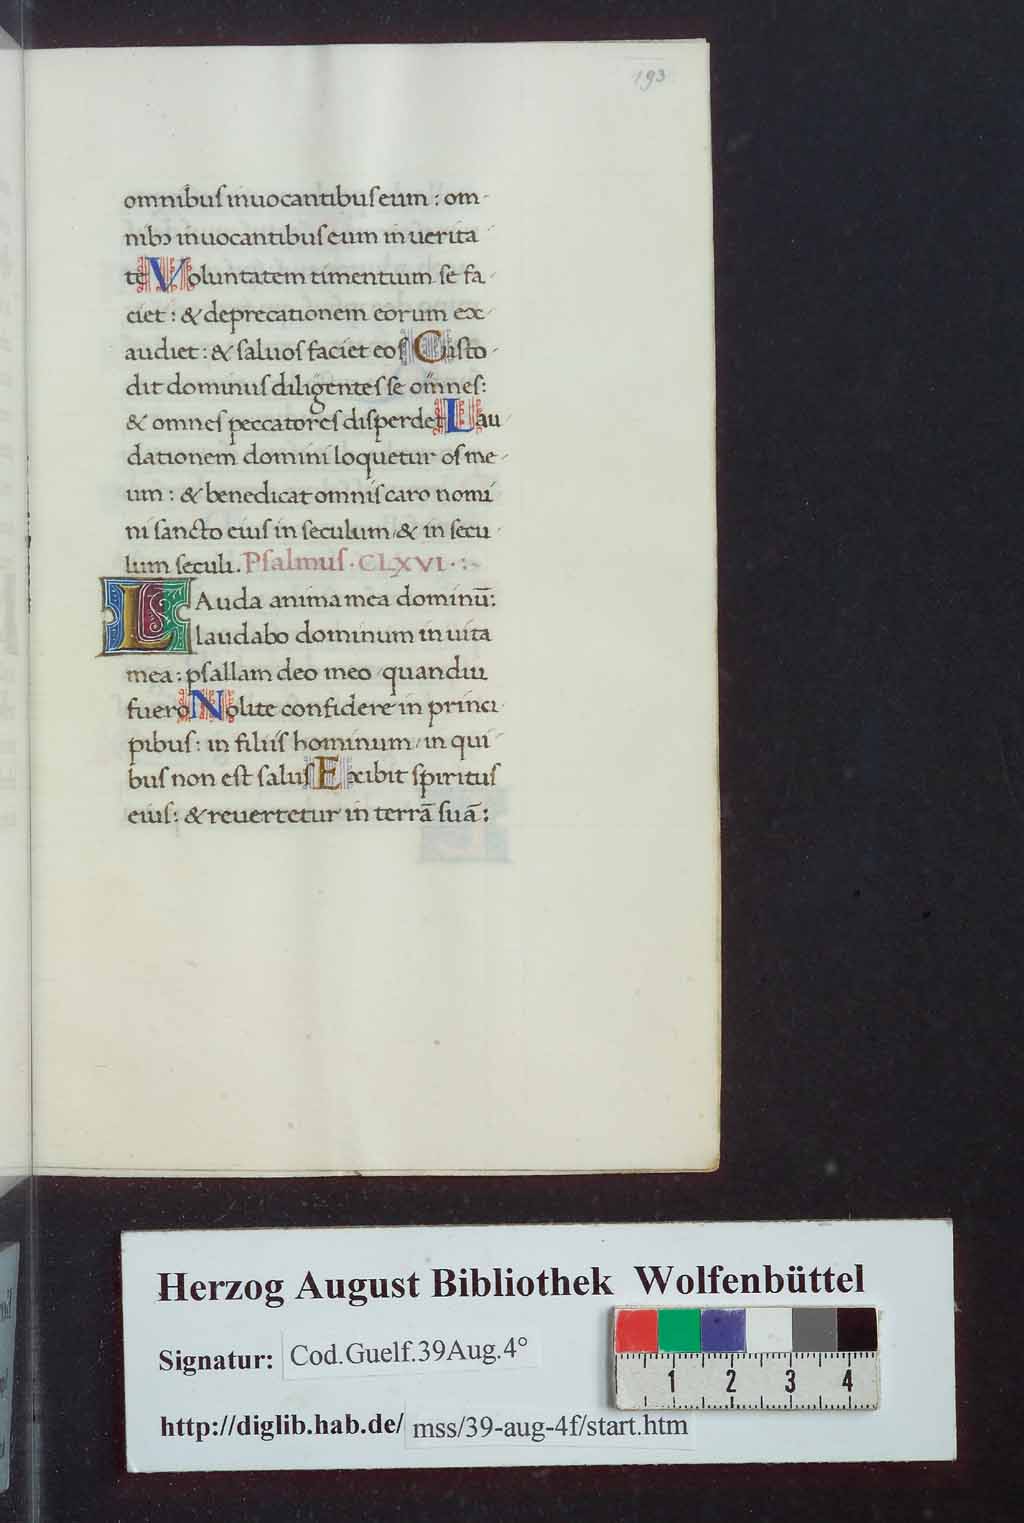 193
omnibuſ inuocantibuſ eum : om-
nibꝫ inuocantibuſ eum in uerita
te Voluntatem timentium ſe fa-
ciet : & deprecationem eorum ex-
audiet : & ſaluoſ faciet eoſ Cuſto-
dit dominuſ diligenteſ ſe omneſ:
& omneſ peccatoreſ diſperdet Lau-
dationem domini loquetur oſ me-
um : & benedicat omniſ caro nomi
ni ſancto eiuſ in ſeculum / & in ſecu-
lum ſeculi. Pſalmuſ · CLXVI · :~
LAuda anima mea dominū:
laudabo dominum in uita
mea : pſallam deo meo / quandiu
fuero Nolite confidere in princi-
pibus : in filiiſ hominum / in qui
bus non eſt ſaluſ Exibit ſpirituſ
eiuſ : & reuertetur in terrā ſuā :
Herzog August Bibliothek Wolfenbüttel
Signatur: Cod.Guelf.39Aug.4°
1 2 3 4
http://diglib.hab.de/ mss/39-aug-4f/start.htm